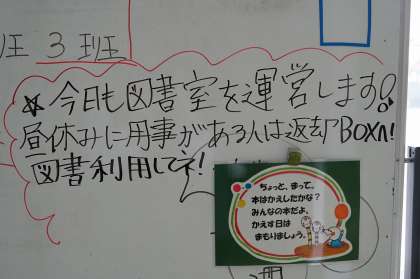 班 3班
☆今日も図書室を運営します!
昼休みに用事がある人は返却BOXへ!
図書利用してネ!
ちょっと、まって。
本はかえしたかな?
みんなの本だよ、
かえす日は
まもりましょう。